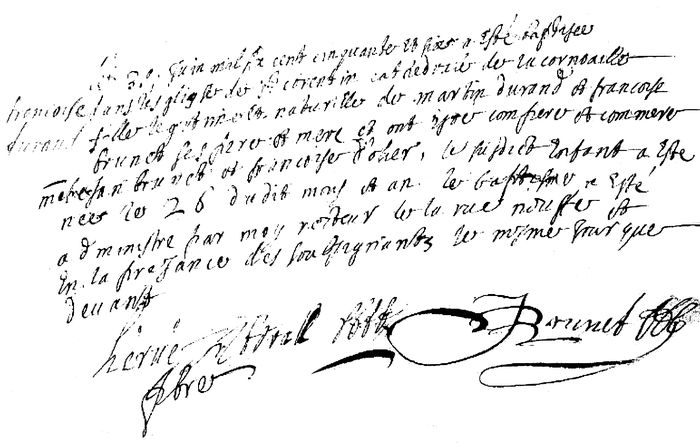 Le 30 Juin mil six cent cinquante et six a esté baptisee
francoise dans leglise de st corentin catedralle de la cornoaille
durand fille legitime et naturelle de martin durand et francoise
brunet ses pere et mere et ont este compere et commere
metre jan brunet et francoise olier, le susdict enfant a este
nee le 26 du dit mois et an le baptesme a esté
administre par moy recteur de la rue nouffe et
en la presance des soubsignants le mesme jour que
devant
hervé
Brunet
pbre